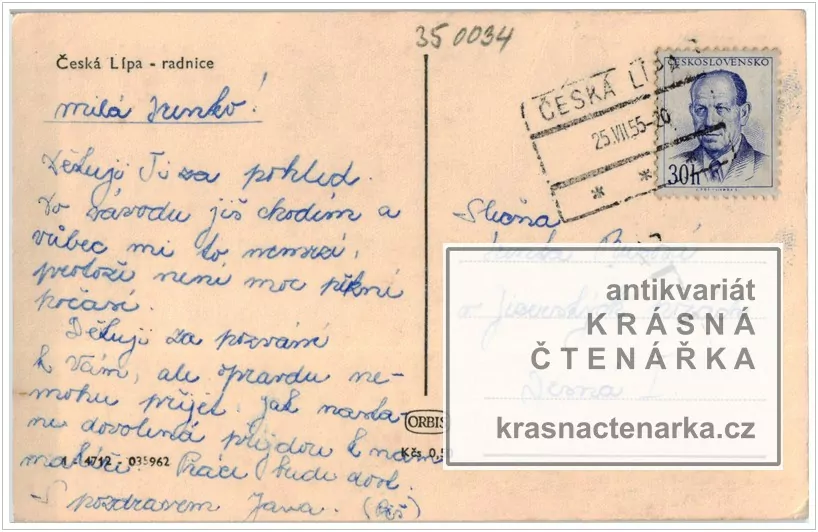 350034
Česká Lípa - radnice
milá Irenko!
Děkuji Ti za pohled.
Do závodu již chodím a
vůbec mi to nemrzí,
protože není moc pěkné
počasí.
Děkuji za pozvání
k Vám, ale opravdu ne-
mohu přijet. Jak nasta-
ne dovolená přijdou k nám
malíři. Práce bude dost.
S pozdravem Jana.
4712 - 035962
ORBIS
Kčs 0,
ČESKÁ LÍPA
25.VII.55-20
* *
ČESKOSLOVENSKO
30h
Slečna
Irenka
v Jizerských horách
Desná I.
antikvariát
KRÁSNÁ
ČTENÁŘKA
krasnactenarka.cz